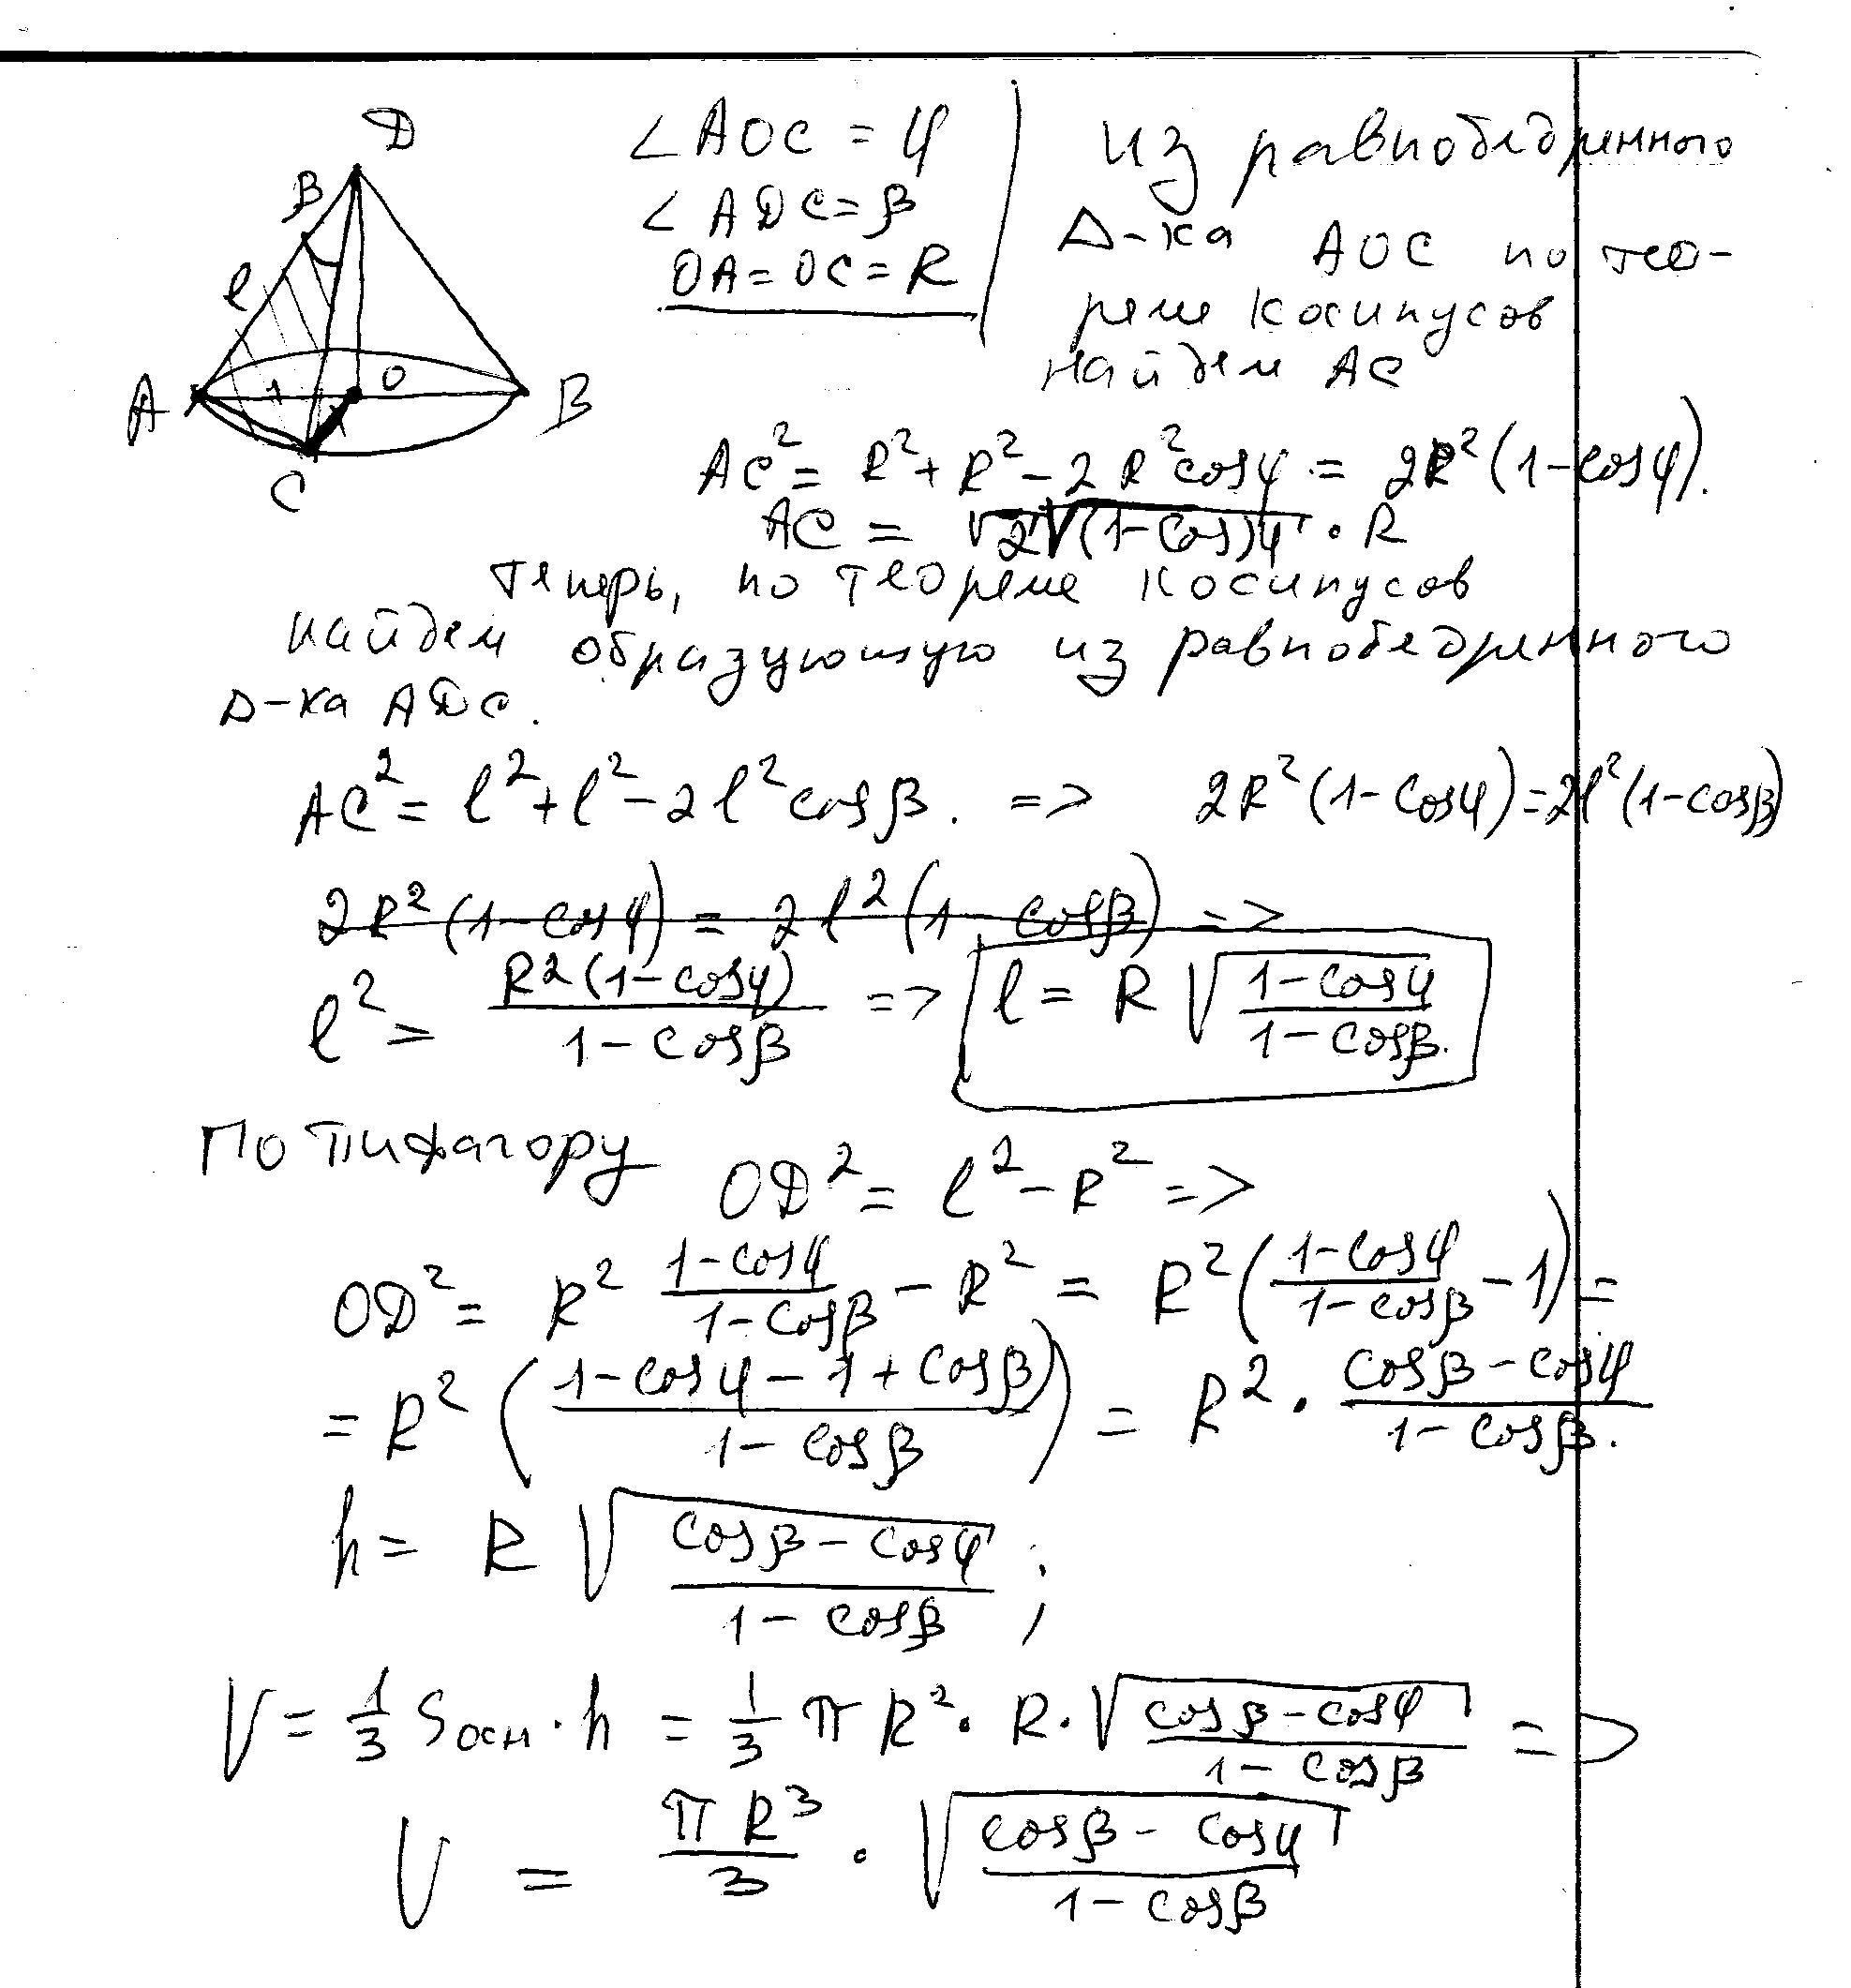 D
B
l
A
O
B
C
∠AOC = φ
∠ADC = β
OA = OC = R
из равнобедренного
Δ-ка AOC по тео-
реме косинусов
найдем AC
AC² = R² + R² − 2R²cosφ = 2R²(1−cosφ).
AC = √2√(1−cos)φ · R
теперь, по теореме косинусов
найдем образующую из равнобедренного
Δ-ка ADC.
AC² = l² + l² − 2l²cosβ. => 2R²(1−cosφ) = 2l²(1−cosβ)
2R²(1−cosφ) = 2l²(1−cosβ) =>
l² = R²(1−cosφ) / 1−cosβ => l = R √(1−cosφ / 1−cosβ.)
По Пифагору OD² = l² − R² =>
OD² = R² (1−cosφ / 1−cosβ) − R² = R²(1−cosφ / 1−cosβ − 1) =
= R² (1−cosφ − 1 + cosβ / 1−cosβ) = R² · cosβ−cosφ / 1−cosβ.
h = R √(cosβ−cosφ / 1−cosβ) ;
V = 1/3 Sосн · h = 1/3 π R² · R · √(cosβ−cosφ / 1−cosβ) =>
V = πR³/3 · √(cosβ−cosφ / 1−cosβ)